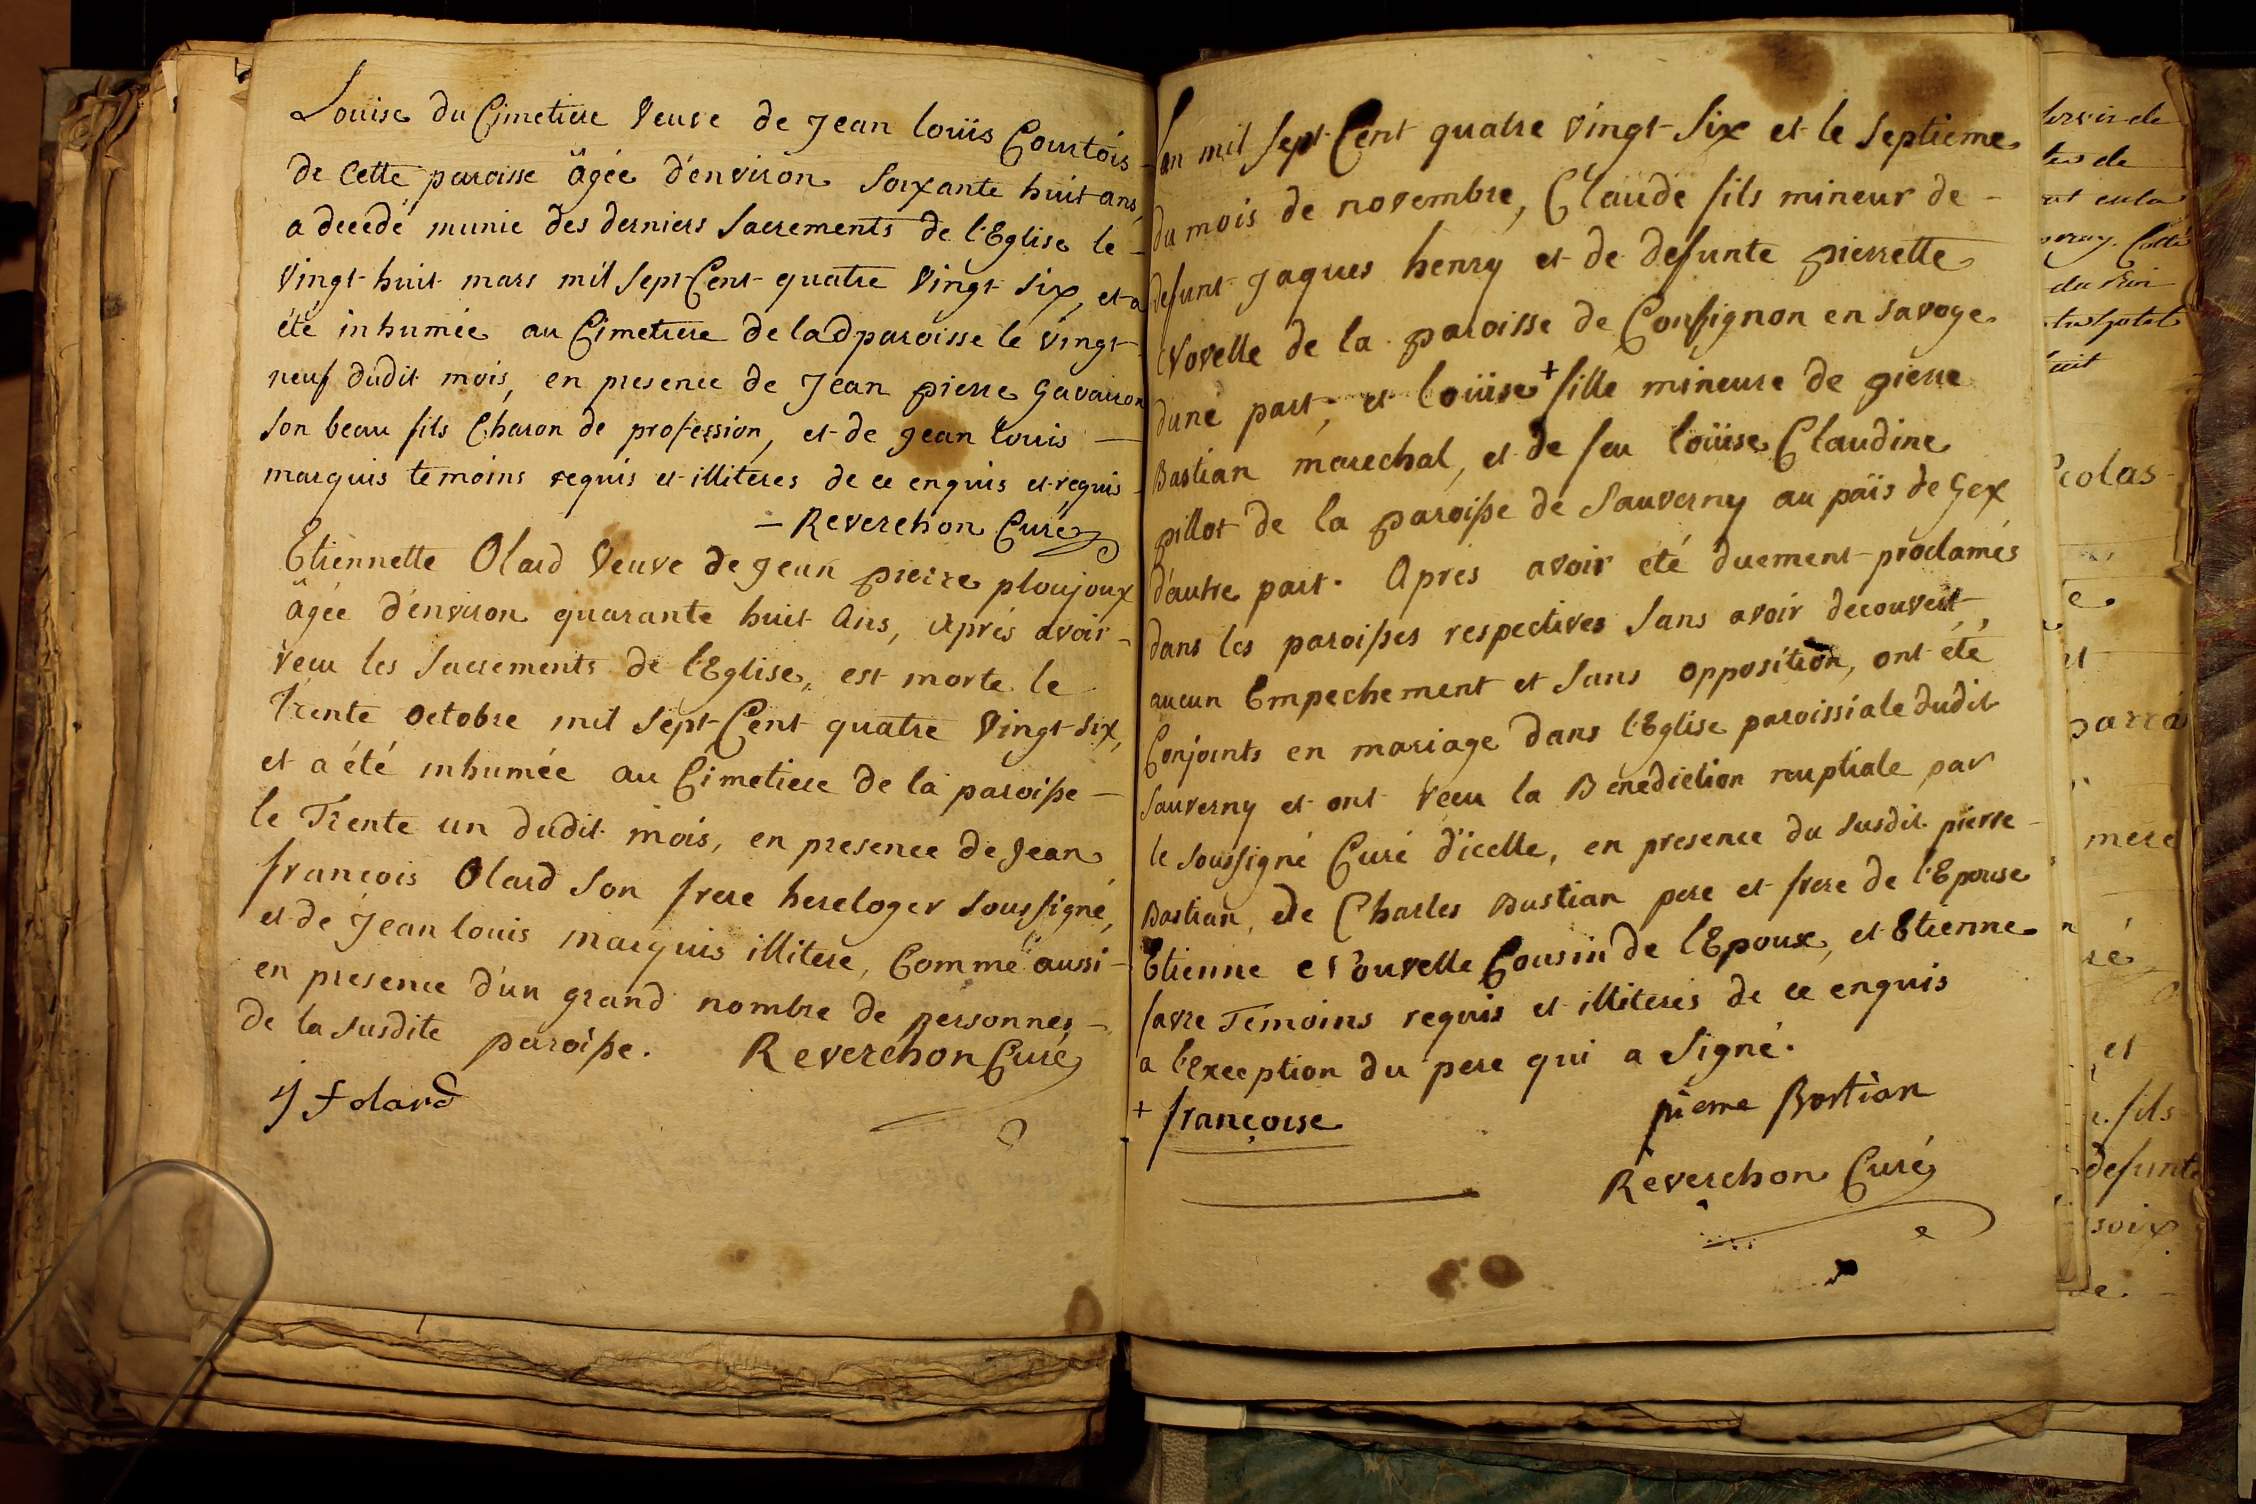 Louise du Cimetiere Veuve de Jean louis Courtois
de Cette paroisse âgée d'environ soixante huit ans,
a decedé munie des derniers Sacrements de l'Eglise le
vingt-huit mars mil sept Cent quatre vingt six, et a
été inhumée au Cimetiere de lad paroisse le vingt
neuf dudit mois, en presence de Jean pierre gavairon
son beau fils Charon de profession, et de Jean Louis
marquis temoins requis et illiteres de ce enquis et requis
Reverchon Curé
Etiennette Olard Veuve de Jean pierre ploujoux
âgée d'environ quarante huit Ans, Aprés avoir
recu les Sacrements de l'Eglise, est morte le
Trente octobre mil sept Cent quatre vingt six,
et a été inhumée au Cimetiere de la paroisse
le Trente un dudit mois, en presence de Jean
francois Olard son frere hereloger soussigné,
et de Jean louis marquis illitere, Comme aussi
en presence d'un grand nombre de personnes
de la susdite paroisse. Reverchon Curé
j f olard
Lan mil sept Cent quatre vingt Six et le septieme
du mois de novembre, Claude fils mineur de
defunt Jaques henry et de defunte pierrette
de la paroisse de Confignon en savoye
dune part, et loüise + fille mineure de pierre
Bastian marechal, et de feu loüise Claudine
pillot de la paroisse de Sauverny au païs de Gex
d'autre part. Apres avoir eté duement proclamés
dans les paroisses respectives sans avoir decouvert
aucun Empechement et sans opposition, ont été
Conjoints en mariage dans l'Eglise paroissiale dudit
Sauverny et ont recu la Benediction nuptiale par
le soussigné Curé d'icelle, en presence du susdit pierre
Bastian, et de Charles Bastian pere et frere de l'Epouse
Etienne Cousin de l'Epoux, et Etienne
favre Temoins requis et illiteres de ce enquis
a l'exception du pere qui a signé.
+ françoise pierre Bastian
Reverchon Curé